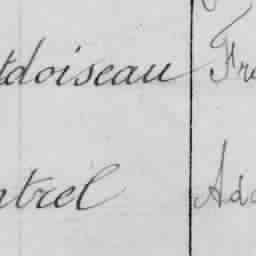 tdoiseau Fra
ntrel Ado